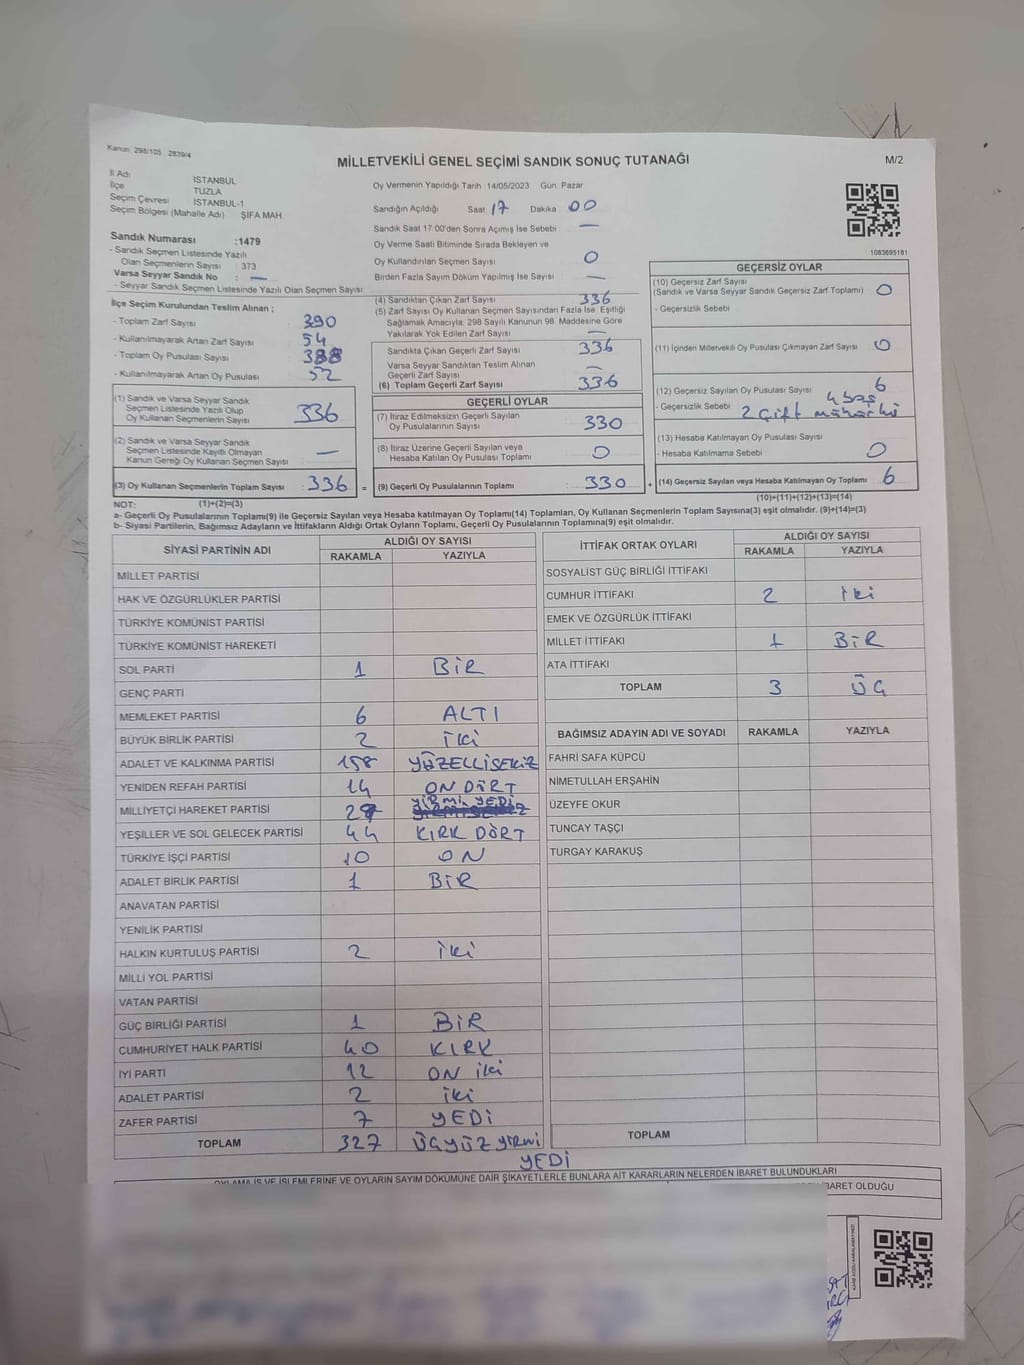 Kanun: 298/105 2839/4
MİLLETVEKİLİ GENEL SEÇİMİ SANDIK SONUÇ TUTANAĞI
M/2
İl Adı İSTANBUL
İlçe TUZLA
Seçim Çevresi İSTANBUL-1
Seçim Bölgesi (Mahalle Adı) ŞİFA MAH
Sandık Numarası :1479
- Sandık Seçmen Listesinde Yazılı
Olan Seçmenlerin Sayısı 373
Varsa Seyyar Sandık No : —
- Seyyar Sandık Seçmen Listesinde Yazılı Olan Seçmen Sayısı
Oy Vermenin Yapıldığı Tarih 14/05/2023 Gün: Pazar
Sandığın Açıldığı Saat: 17 Dakika 00
Sandık Saat 17:00'den Sonra Açımış İse Sebebi —
Oy Verme Saati Bitiminde Sırada Bekleyen ve
Oy Kullandırılan Seçmen Sayısı 0
Birden Fazla Sayım Döküm Yapılmış İse Sayısı —
1083695181
İlçe Seçim Kurulundan Teslim Alınan ;
- Toplam Zarf Sayısı 390
- Kullanılmayarak Artan Zarf Sayısı 54
- Toplam Oy Pusulası Sayısı 388
- Kullanılmayarak Artan Oy Pusulası 52
(1) Sandık ve Varsa Seyyar Sandık
Seçmen Listesinde Yazılı Olup
Oy Kullanan Seçmenlerin Sayısı 336
(2) Sandık ve Varsa Seyyar Sandık
Seçmen Listesinde Kayıtlı Olmayan
Kanun Gereği Oy Kullanan Seçmen Sayısı —
(3) Oy Kullanan Seçmenlerin Toplam Sayısı : 336 =
(4) Sandıktan Çıkan Zarf Sayısı 336
(5) Zarf Sayısı Oy Kullanan Seçmen Sayısından Fazla İse, Eşitliği
Sağlamak Amacıyla; 298 Sayılı Kanunun 98. Maddesine Göre
Yakılarak Yok Edilen Zarf Sayısı —
Sandıkta Çıkan Geçerli Zarf Sayısı 336
Varsa Seyyar Sandıktan Teslim Alınan
Geçerli Zarf Sayısı —
(6) Toplam Geçerli Zarf Sayısı 336
GEÇERLİ OYLAR
(7) İtiraz Edilmeksizin Geçerli Sayılan
Oy Pusulalarının Sayısı 330
(8) İtiraz Üzerine Geçerli Sayılan veya
Hesaba Katılan Oy Pusulası Toplamı 0
(9) Geçerli Oy Pusulalarının Toplamı : 330 +
GEÇERSİZ OYLAR
(10) Geçersiz Zarf Sayısı
(Sandık ve Varsa Seyyar Sandık Geçersiz Zarf Toplamı) 0
- Geçersizlik Sebebi
(11) İçinden Milletvekili Oy Pusulası Çıkmayan Zarf Sayısı 0
(12) Geçersiz Sayılan Oy Pusulası Sayısı 6
4 boş
- Geçersizlik Sebebi 2 Çift
(13) Hesaba Katılmayan Oy Pusulası Sayısı
- Hesaba Katılmama Sebebi 0
(14) Geçersiz Sayılan veya Hesaba Katılmayan Oy Toplamı 6
NOT: (1)+(2)=(3)
(10)+(11)+(12)+(13)=(14)
a- Geçerli Oy Pusulalarının Toplamı(9) ile Geçersiz Sayılan veya Hesaba katılmayan Oy Toplamı(14) Toplamları, Oy Kullanan Seçmenlerin Toplam Sayısına(3) eşit olmalıdır. (9)+(14)=(3)
b- Siyasi Partilerin, Bağımsız Adayların ve İttifakların Aldığı Ortak Oyların Toplamı, Geçerli Oy Pusulalarının Toplamına(9) eşit olmalıdır.
SİYASİ PARTİNİN ADI ALDIĞI OY SAYISI
RAKAMLA YAZIYLA
MİLLET PARTİSİ
HAK VE ÖZGÜRLÜKLER PARTİSİ
TÜRKİYE KOMÜNİST PARTİSİ
TÜRKİYE KOMÜNİST HAREKETİ
SOL PARTİ 1 BİR
GENÇ PARTİ
MEMLEKET PARTİSİ 6 ALTI
BÜYÜK BİRLİK PARTİSİ 2 İki
ADALET VE KALKINMA PARTİSİ 158 YÜZELLİSEKİZ
YENİDEN REFAH PARTİSİ 14 ON DÖRT
MİLLİYETÇİ HAREKET PARTİSİ 27 YİRMİ YEDİ
YEŞİLLER VE SOL GELECEK PARTİSİ 44 KIRK DÖRT
TÜRKİYE İŞÇİ PARTİSİ 10 ON
ADALET BİRLİK PARTİSİ 1 BİR
ANAVATAN PARTİSİ
YENİLİK PARTİSİ
HALKIN KURTULUŞ PARTİSİ 2 İki
MİLLİ YOL PARTİSİ
VATAN PARTİSİ
GÜÇ BİRLİĞİ PARTİSİ 1 BİR
CUMHURİYET HALK PARTİSİ 40 KIRK
İYİ PARTİ 12 ON iki
ADALET PARTİSİ 2 iki
ZAFER PARTİSİ 7 YEDİ
TOPLAM 327 ÜÇYÜZ YİRMİ
YEDİ
İTTİFAK ORTAK OYLARI ALDIĞI OY SAYISI
RAKAMLA YAZIYLA
SOSYALİST GÜÇ BİRLİĞİ İTTİFAKI
CUMHUR İTTİFAKI 2 iki
EMEK VE ÖZGÜRLÜK İTTİFAKI
MİLLET İTTİFAKI 1 BİR
ATA İTTİFAKI
TOPLAM 3 ÜÇ
BAĞIMSIZ ADAYIN ADI VE SOYADI RAKAMLA YAZIYLA
FAHRİ SAFA KÜPCÜ
NİMETULLAH ERŞAHİN
ÜZEYFE OKUR
TUNCAY TAŞÇI
TURGAY KARAKUŞ
TOPLAM
OYLAMA İŞ VE İŞLEMLERİNE VE OYLARIN SAYIM DÖKÜMÜNE DAİR ŞİKAYETLERLE BUNLARA AİT KARARLARIN NELERDEN İBARET BULUNDUKLARI
İBARET OLDUĞU